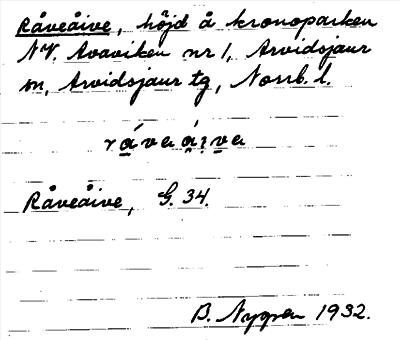 Råveåive, höjd å kronoparken
NV. Avaviken nr 1, Arvidsjaur
sn, Arvidsjaur tg, Norrb. l.
ráveái̯va
Råveåive, G. 34.
B. Nygren 1932.